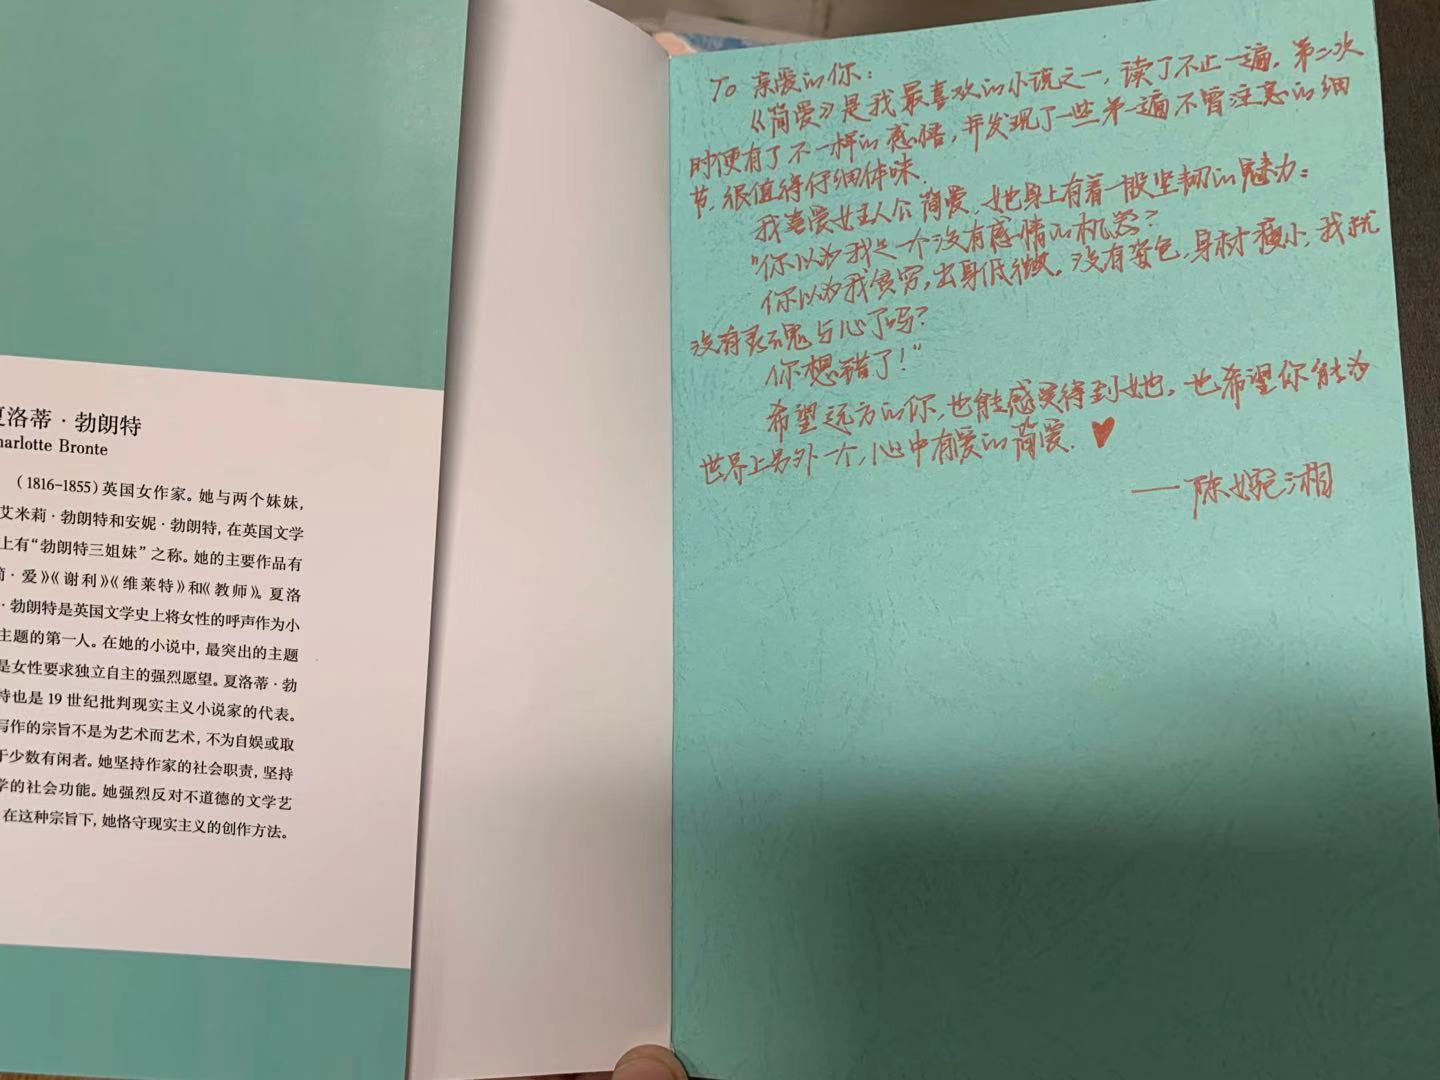 夏洛蒂·勃朗特
harlotte Bronte
(1816-1855)英国女作家。她与两个妹妹,
艾米莉·勃朗特和安妮·勃朗特,在英国文学
上有“勃朗特三姐妹”之称。她的主要作品有
·爱》《谢利》《维莱特》和《教师》。夏洛
·勃朗特是英国文学史上将女性的呼声作为小
主题的第一人。在她的小说中,最突出的主题
是女性要求独立自主的强烈愿望。夏洛蒂·勃
特也是19世纪批判现实主义小说家的代表。
写作的宗旨不是为艺术而艺术,不为自娱或取
于少数有闲者。她坚持作家的社会职责,坚持
学的社会功能。她强烈反对不道德的文学艺
在这种宗旨下,她恪守现实主义的创作方法。
To 亲爱的你:
《简爱》是我最喜欢的小说之一,读了不止一遍,第二次
时便有了不一样的感悟,并发现了一些第一遍不曾注意的细
节,很值得仔细体味.
我喜爱女主人公简爱,她身上有着一股坚韧的魅力:
“你以为我是一个没有感情的机器?
你以为我贫穷,出身低微,没有姿色,身材瘦小,我就
没有灵魂与心了吗?
你想错了!”
希望远方的你,也能感受得到她,也希望你能为
世界上另外一个,心中有爱的简爱.♥
——陈婉湘